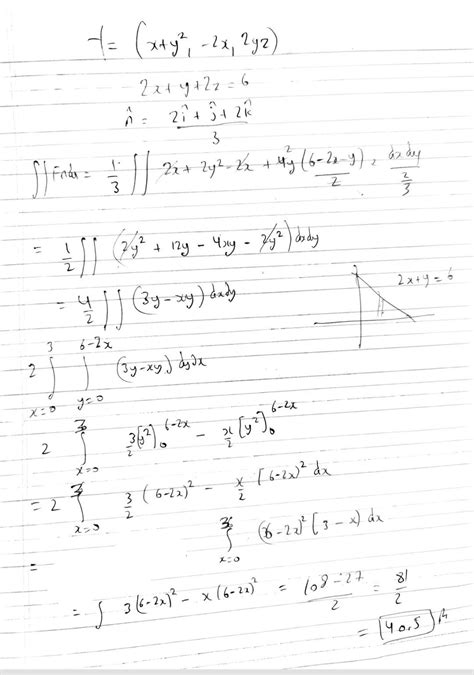 F = (x+y², -2x, 2yz)
2x + y + 2z = 6
n̂ = (2î + ĵ + 2k̂)/3
∬ F·n ds = 1/3 ∬ 2x + 2y² - 2x + 4y (6-2x-y)/2 × dxdy/(2/3)
= 1/2 ∬ (2y² + 12y - 4xy - 2y²) dxdy
= 4/2 ∬ (3y - xy) dxdy
2x+y=6
2 ∫_{x=0}^{3} ∫_{y=0}^{6-2x} (3y-xy) dydx
2 ∫_{x=0}^{3} 3/2 [y²]_0^{6-2x} - x/2 [y²]_0^{6-2x}
= 2 ∫_{x=0}^{3} 3/2 (6-2x)² - x/2 (6-2x)² dx
= ∫_{x=0}^{3} (6-2x)² (3-x) dx
= ∫ 3(6-2x)² - x(6-2x)² = (108-27)/2 = 81/2
= 40.5